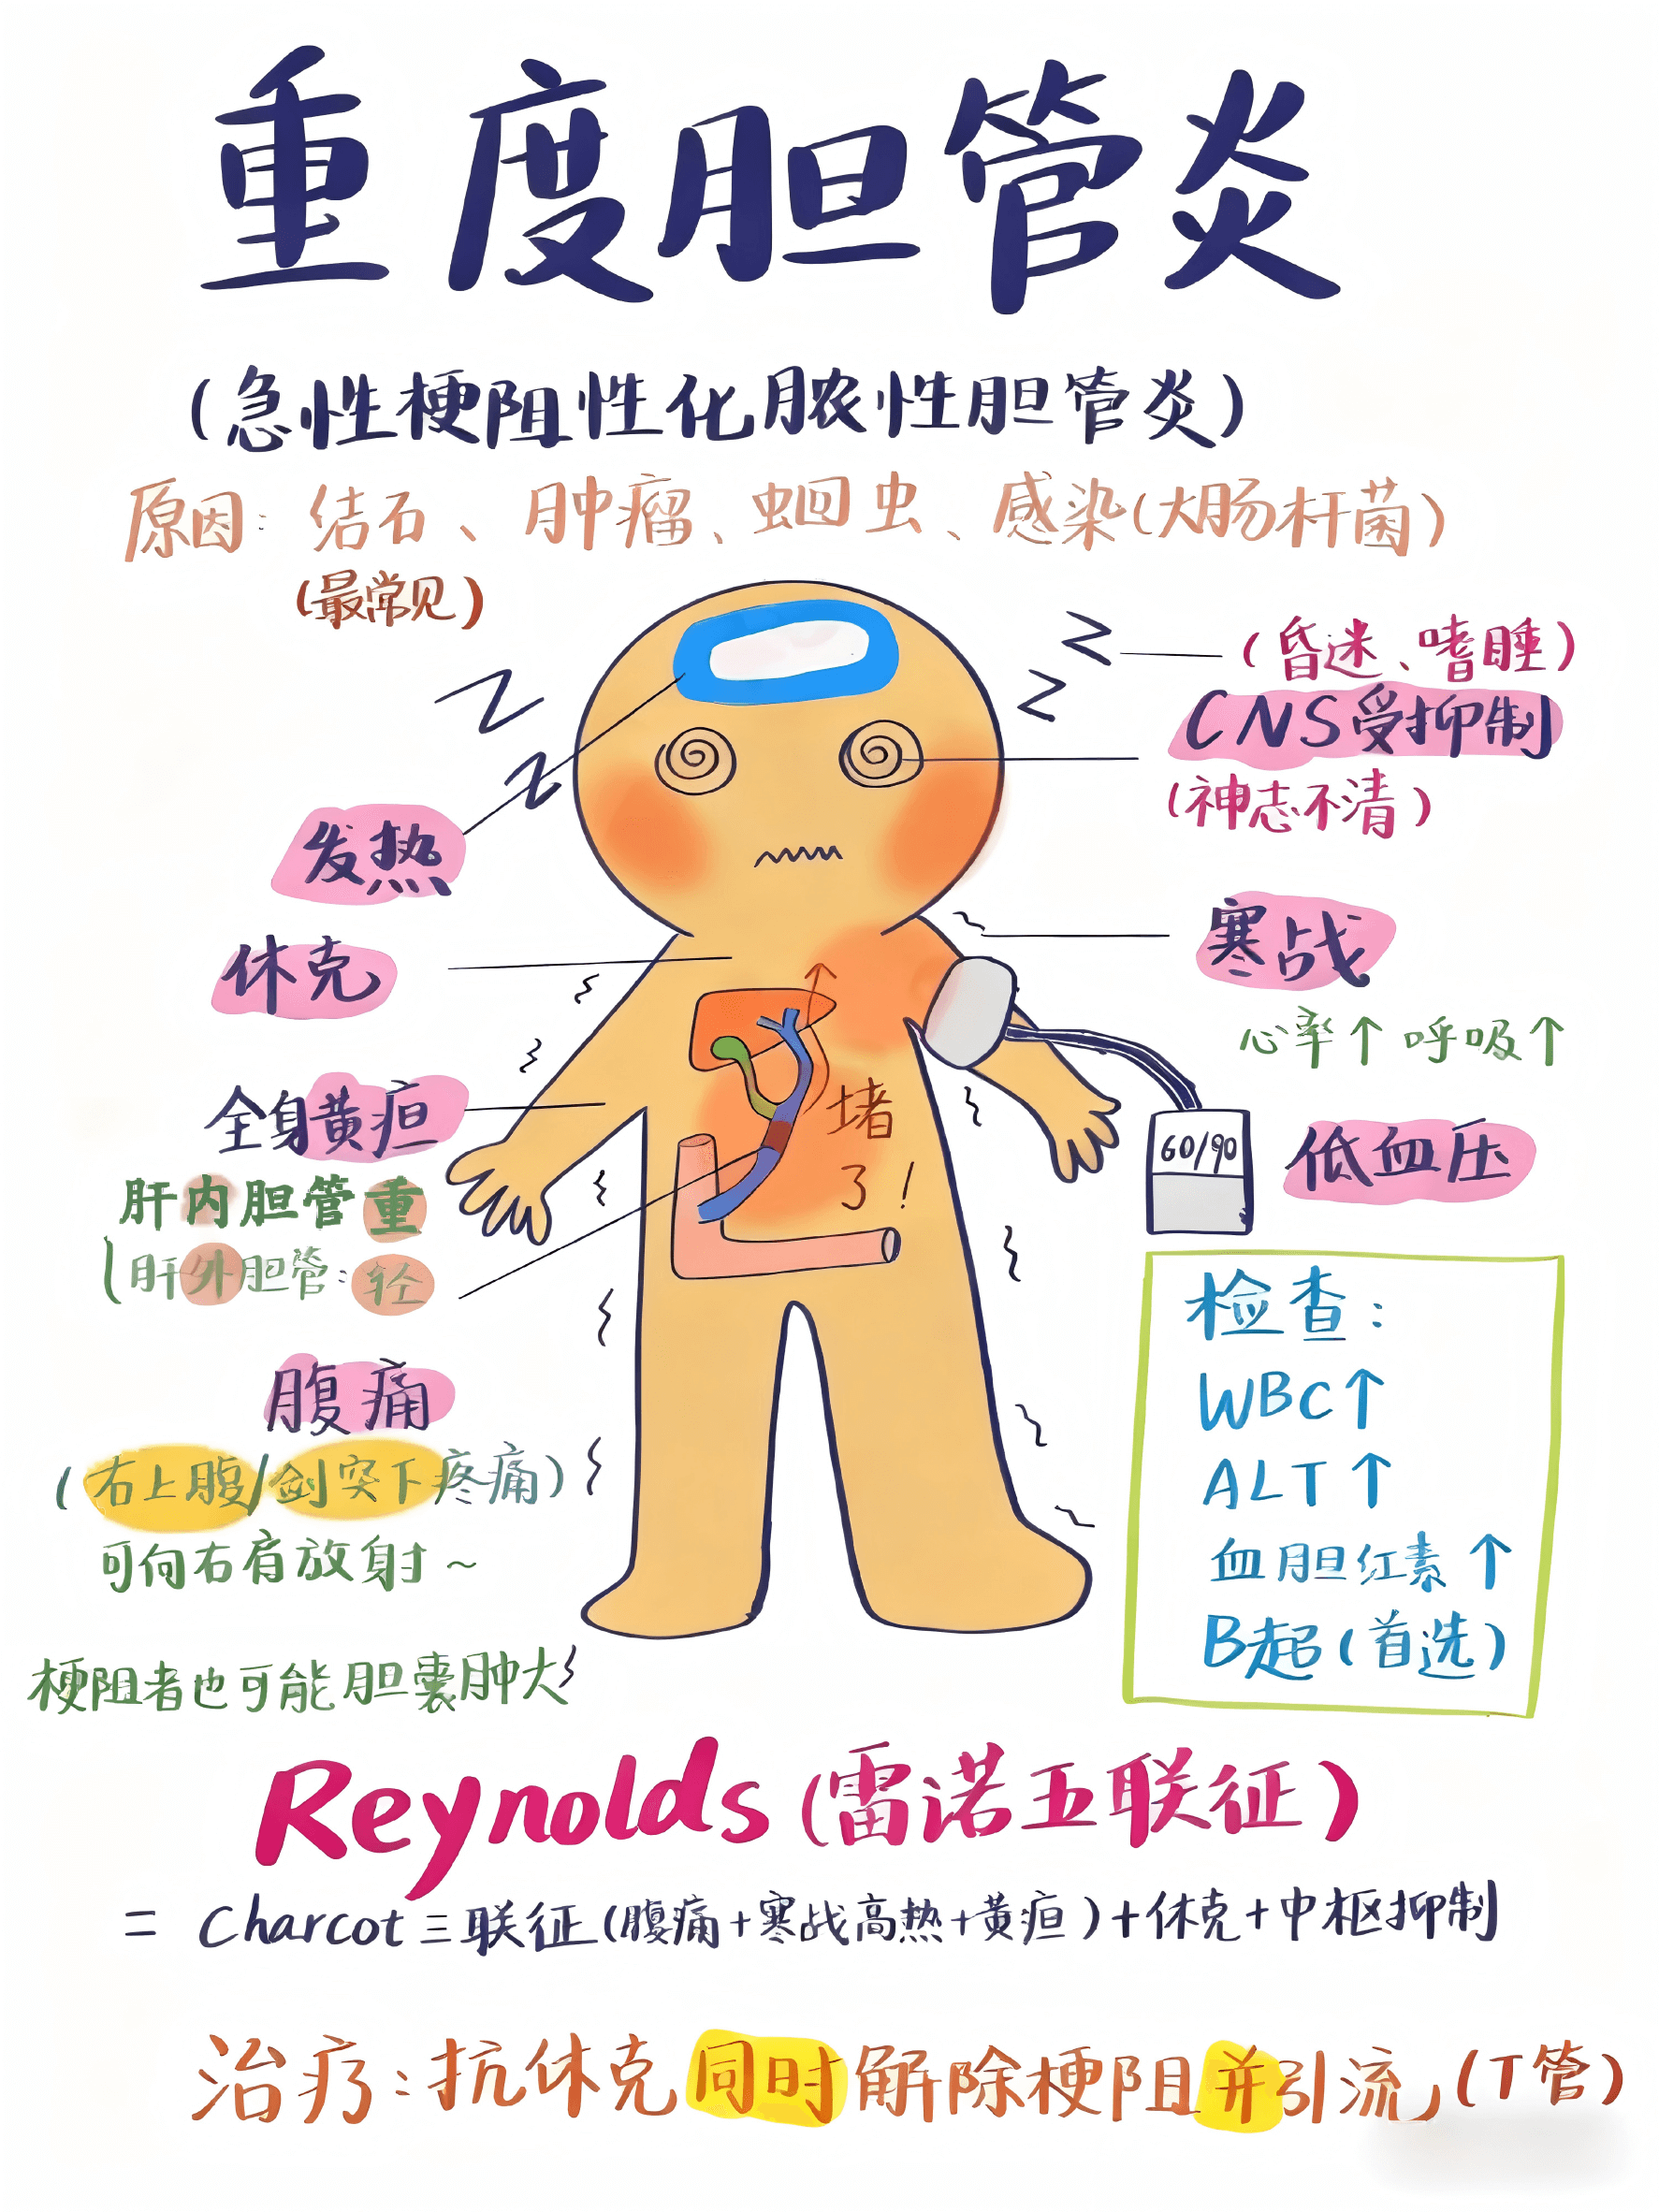 重度胆管炎
(急性梗阻性化脓性胆管炎)
原因：结石、肿瘤、蛔虫、感染(大肠杆菌)
(最常见)
(昏迷、嗜睡)
CNS受抑制
(神志不清)
发热
寒战
休克
心率↑ 呼吸↑
全身黄疸
堵
了！
60/90
低血压
肝内胆管重
(肝外胆管：轻
腹痛
(右上腹/剑突下疼痛)
可向右肩放射~
梗阻者也可能胆囊肿大
检查：
WBC↑
ALT↑
血胆红素↑
B超(首选)
Reynolds(雷诺五联征)
= Charcot三联征(腹痛+寒战高热+黄疸)+休克+中枢抑制
治疗：抗休克同时解除梗阻并引流(T管)